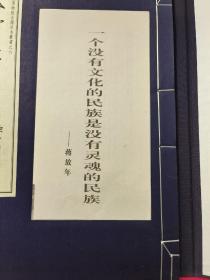 一个没有文化的民族是没有灵魂的民族
——蒋放年